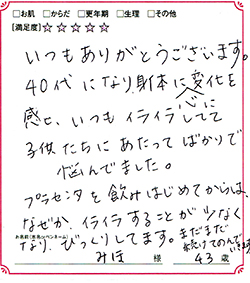 □お肌 □からだ □更年期 □生理 □その他
[満足度]☆☆☆☆☆
いつもありがとうございます。
40代になり身体に変化を
心に
感せ、いつもイライラしてて
子供たちにあたってばかりで
悩んでました。
プラセンタを飲みはじめてからは、
なぜか、イライラすることが少なく
なり、びっくりしてます。まだまだ
続けてのんで
お名前(匿名orペンネーム) みほ 様 43歳